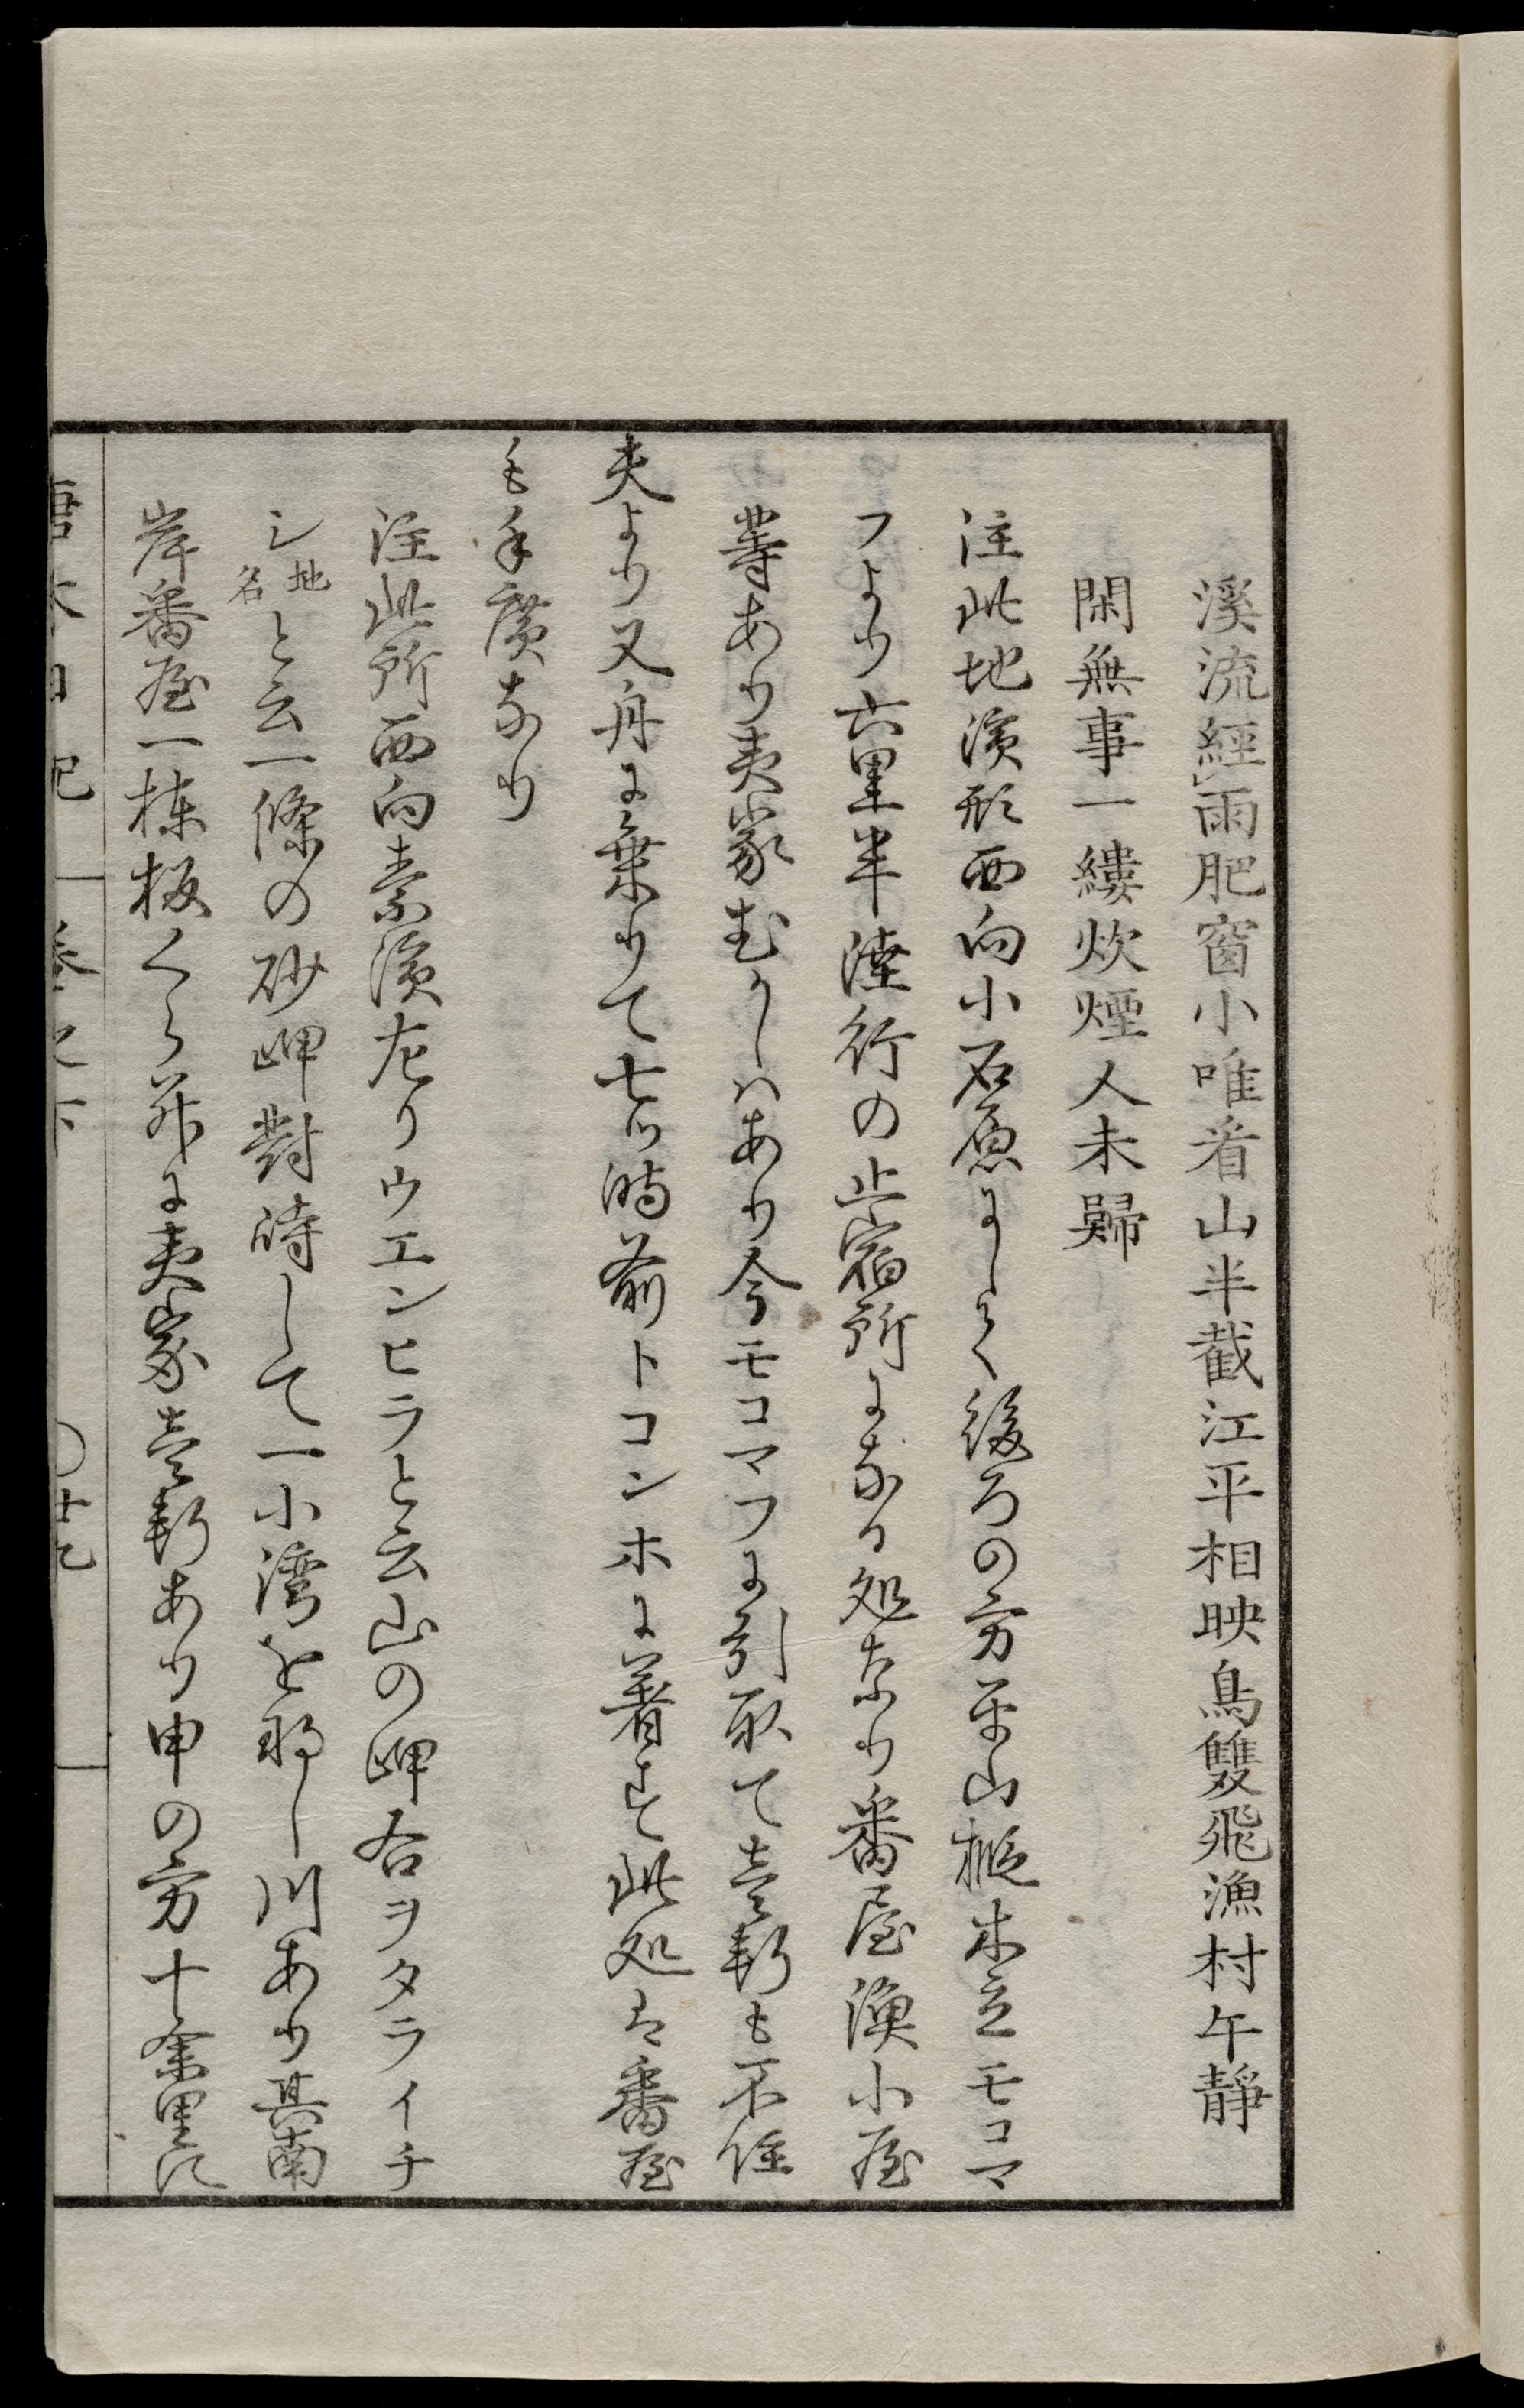 溪流經雨肥窗小唯看山半截江平相映鳥雙飛漁村午靜
閑無事一縷炊煙人未歸
注此地濱形西向小石原にして後ろの方平山椴木立モコマ
フより六里半陸行の止宿所になる処なり番屋漁小屋
等あり夷家むかしハあり今モコマフに引取て壹軒も不住
夫より又舟に乗りて七ツ時前トコンホに着す此処は番屋
も手廣なり
注此所西向素濱左りウエンヒラと云山の岬右ヲタライチ
シ地名と云一條の砂岬對峙して一小湾を形し川あり其南
岸番屋一棟板くら并に夷家壹軒あり申の方十余里に
唐太日記 巻之下 〇十九